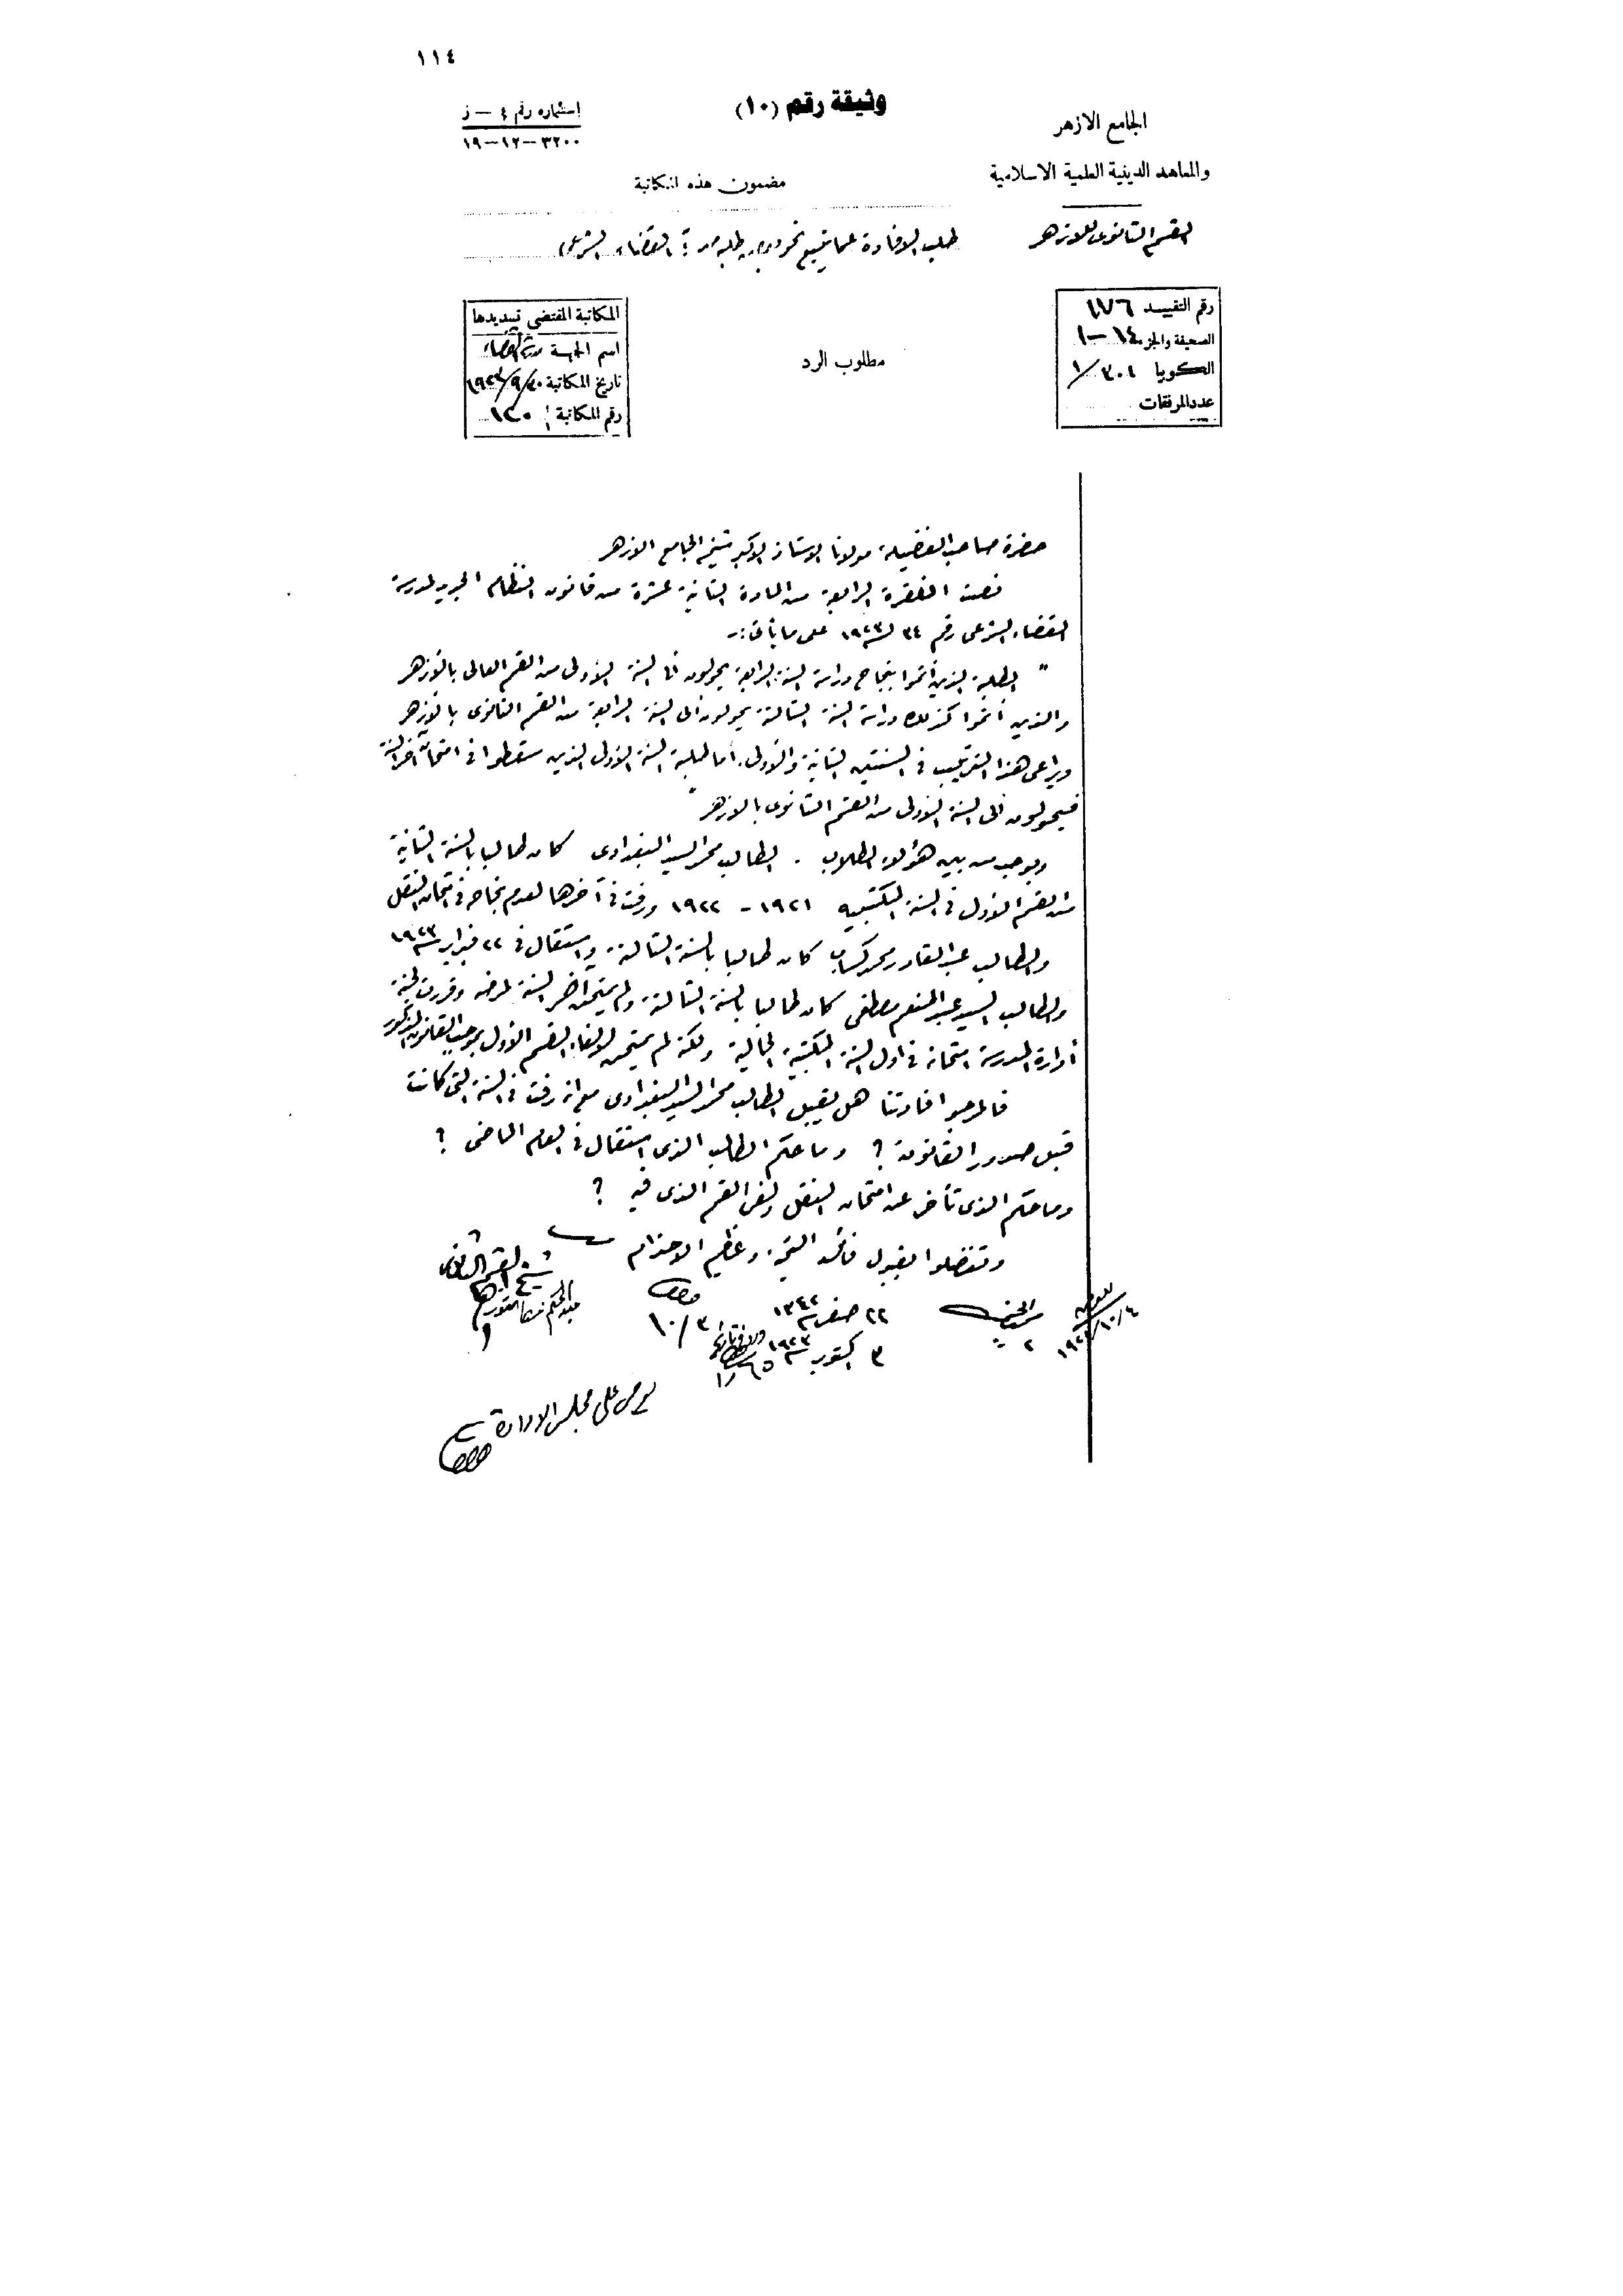 ١١٤
وثيقة رقم (١٠)
الجامع الازهر
والمعاهد الدينية العلمية الاسلامية
القسم الثانوى للازهر
استماره رقم ٤ — ز
٣٢٠٠–١٢–١٩
مضمون هذه المكاتبة
طلب الافادة عما يتبع نحو طلبة القضاء الشرعى
رقم التقييد ١٧٦
الصحيفة والجزء ١٤-١
الكوبيا ٣٠١/١
عدد المرفقات
مطلوب الرد
المكاتبة المقتضى تسديدها
اسم الجهة مدرسة القضاء
تاريخ المكاتبة ٣٠/٩/١٩٢٣
رقم المكاتبة ١٣٠
حضرة صاحب الفضيلة مولانا الاستاذ الاكبر شيخ الجامع الازهر
نصت الفقرة الرابعة من المادة الثانية عشرة من قانون النظام الجديد لمدرسة
القضاء الشرعى رقم ٣٤ لسنة ١٩٢٣ على ما يأتى :-
" الطلبة الذين أتموا بنجاح دراسة السنة الرابعة يحولون الى السنة الأولى من القسم العالى بالأزهر
والذين أتموا كذلك دراسة السنة الثالثة يحولون الى السنة الرابعة من القسم الثانوى بالأزهر
ويراعى هذا الترتيب فى السنتين الثانية والأولى. أما طلبة السنة الأولى الذين سقطوا فى امتحان آخر السنة
فيحولون الى السنة الأولى من القسم الثانوى بالازهر "
ويوجد من بين هؤلاء الطلاب . الطالب محمد السيد البغدادى كان طالبا بالسنة الثانية
من القسم الأول فى السنة المكتبية ١٩٢١ - ١٩٢٢ ورفت فى آخرها لعدم نجاحه فى امتحان النقل
والطالب عبد القادر محمد كساب كان طالبا بالسنة الثالثة واستقال فى ٢٢ فبراير سنة ١٩٢٣
والطالب السيد عبد المنعم مصطفى كان طالبا بالسنة الثالثة ولم يمتحن آخر السنة لمرضه وقررت لجنة
أدارة المدرسة امتحانه فى اول السنة المكتبية الحالية ولكنه لم يمتحن لالغاء القسم الأول بموجب القانون المذكور
فالمرجو افادتنا هل يقبل الطالب محمد السيد البغدادى مع انه رفت فى السنة التى كانت
قبل صدور القانون ؟ وما حكم الطالب الذى استقال فى العام الماضى ؟
وما حكم الذى تأخر عن امتحان النقل ولغى القسم الذى فيه ؟
وتفضلوا بقبول فائق التحية وعظيم الاحترام
شيخ القسم الثانوى
٢٢ صفر سنة ١٣٤٢
٣ اكتوبر سنة ١٩٢٣
٣/١٠
٤/١٠/١٩٢٣
يعرض على مجلس الادارة